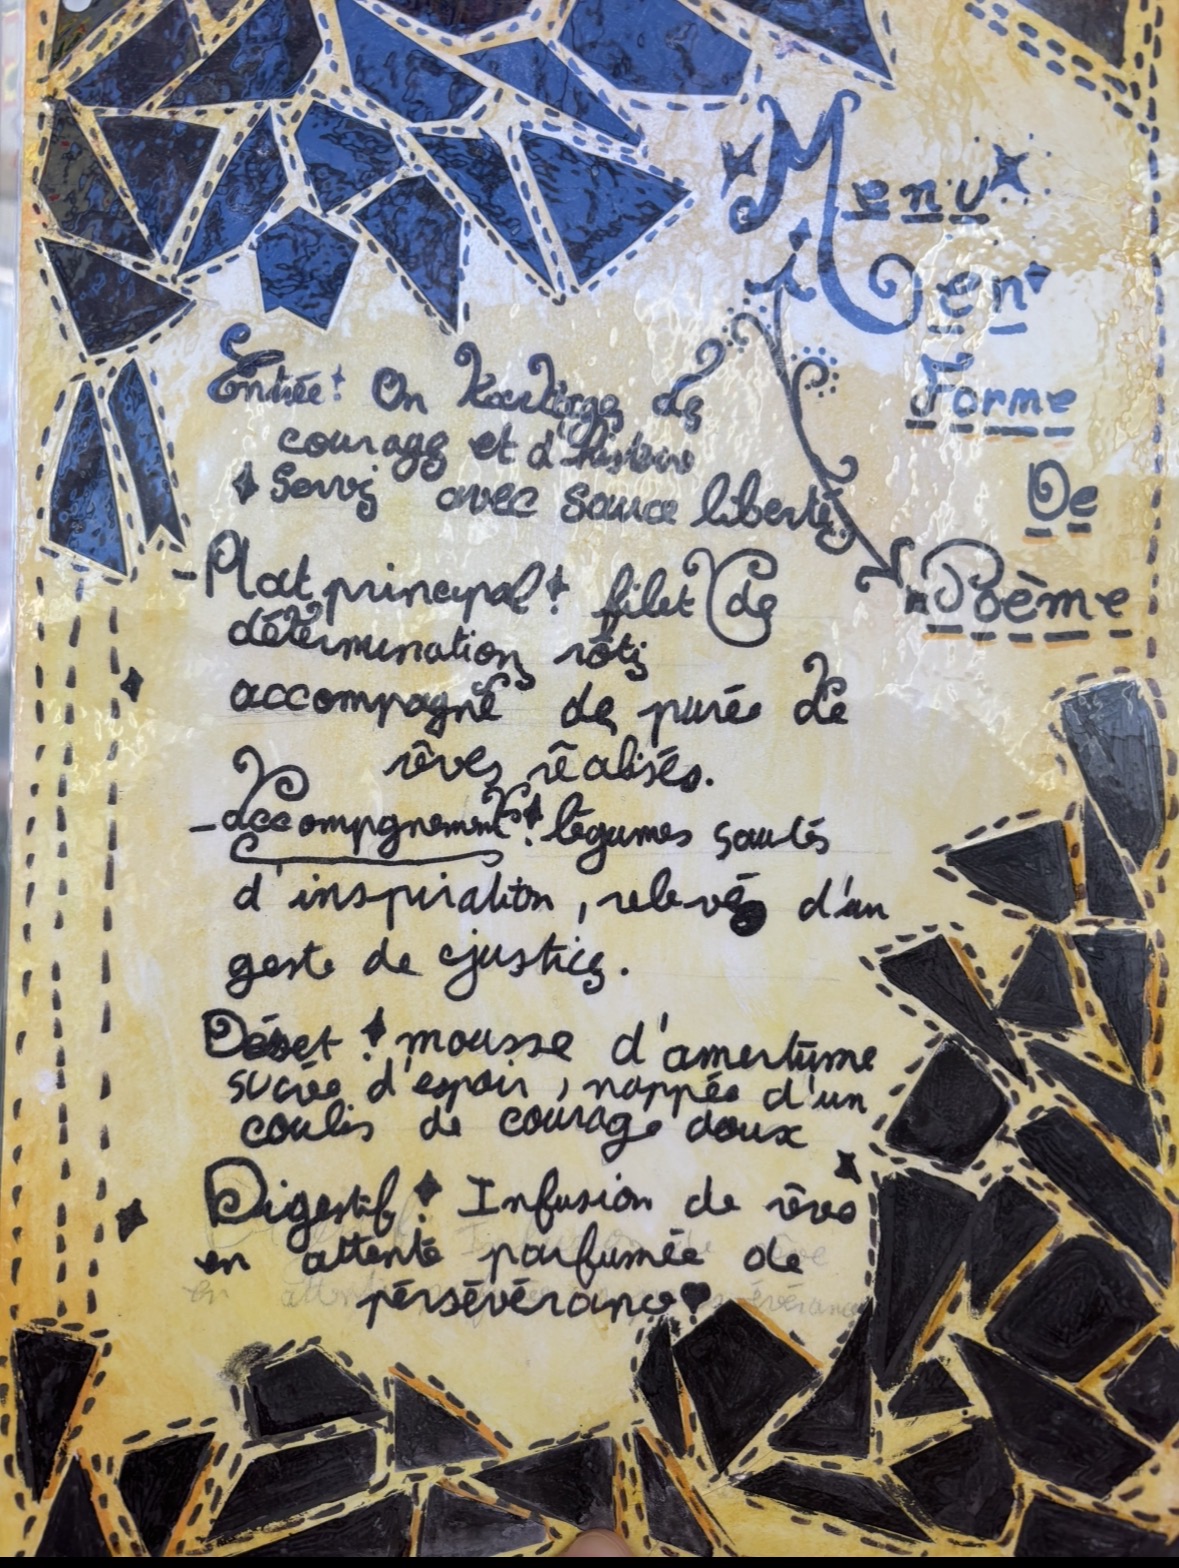 Menu
en
Forme
De
Poème
Entrée : On de
courage et d'histoire
Servi avec sauce liberté
- Plat principal : filet de
détermination rôti
accompagné de purée de
rêves réalisés.
- accompgnement : légumes sautés
d'inspiration, relevé d'un
geste de justice.
Déset : mousse d'amertume
sucrée d'espoir, nappée d'un
coulis de courage doux
Digestif : Infusion de rêve
en attente parfumée de
pérsévérance